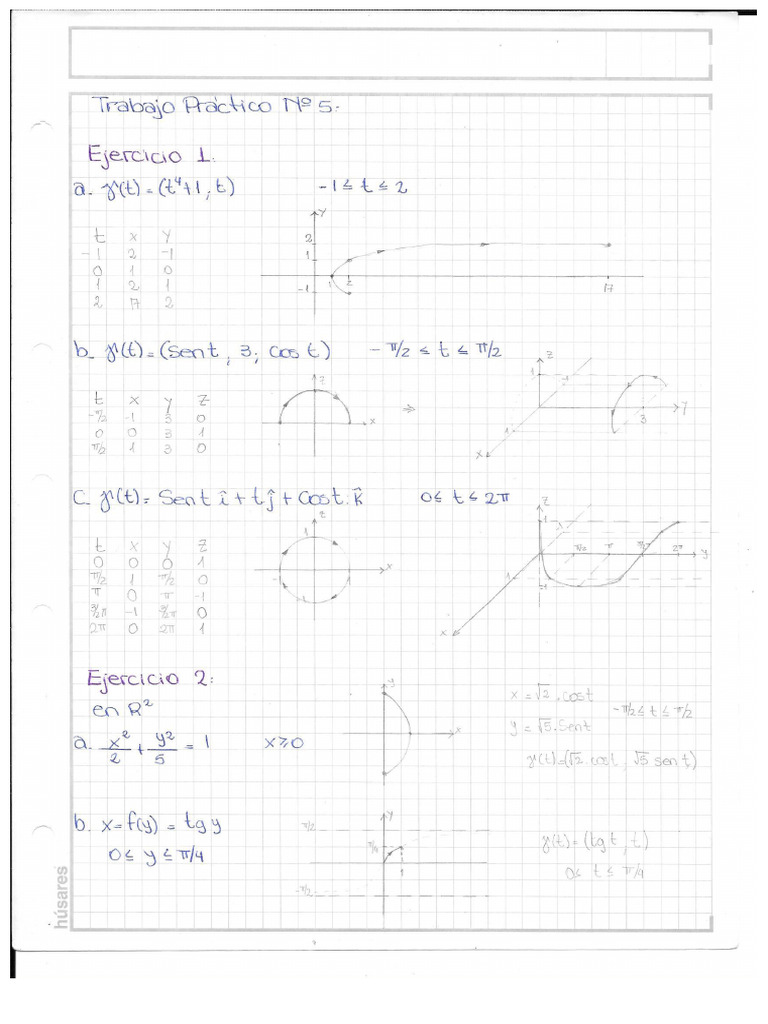 Trabajo Práctico Nº 5:
Ejercicio 1:
a. γ(t) = (t⁴+1, t)   -1 ≤ t ≤ 2
t x y
-1 2 -1
0 1 0
1 2 1
2 17 2
y
2
1
-1
1 2 17
b. γ(t) = (Sen t, 3, cos t)   -π/2 ≤ t ≤ π/2
t x y z
-π/2 -1 3 0
0 0 3 1
π/2 1 3 0
z
x
⇒
z
1
-1
3
y
1
x
C. γ(t) = Sen t î + t ĵ + Cos t. k̂   0 ≤ t ≤ 2π
t x y z
0 0 0 1
π/2 1 π/2 0
π 0 π -1
3/2π -1 3/2π 0
2π 0 2π 1
z
1
-1 1 x
-1
z
1
π/2 π 3/2π 2π y
1
-1
x
Ejercicio 2:
en R²
a. x²/2 + y²/5 = 1   x ≥ 0
y
x
x = √2 . cos t
-π/2 ≤ t ≤ π/2
y = √5 . Sen t
γ(t) = (√2 cos t, √5 sen t)
b. x = f(y) = tg y
0 ≤ y ≤ π/4
y
π/2
π/4
1
-π/2
γ(t) = (tg t, t)
0 ≤ t ≤ π/4
húsares